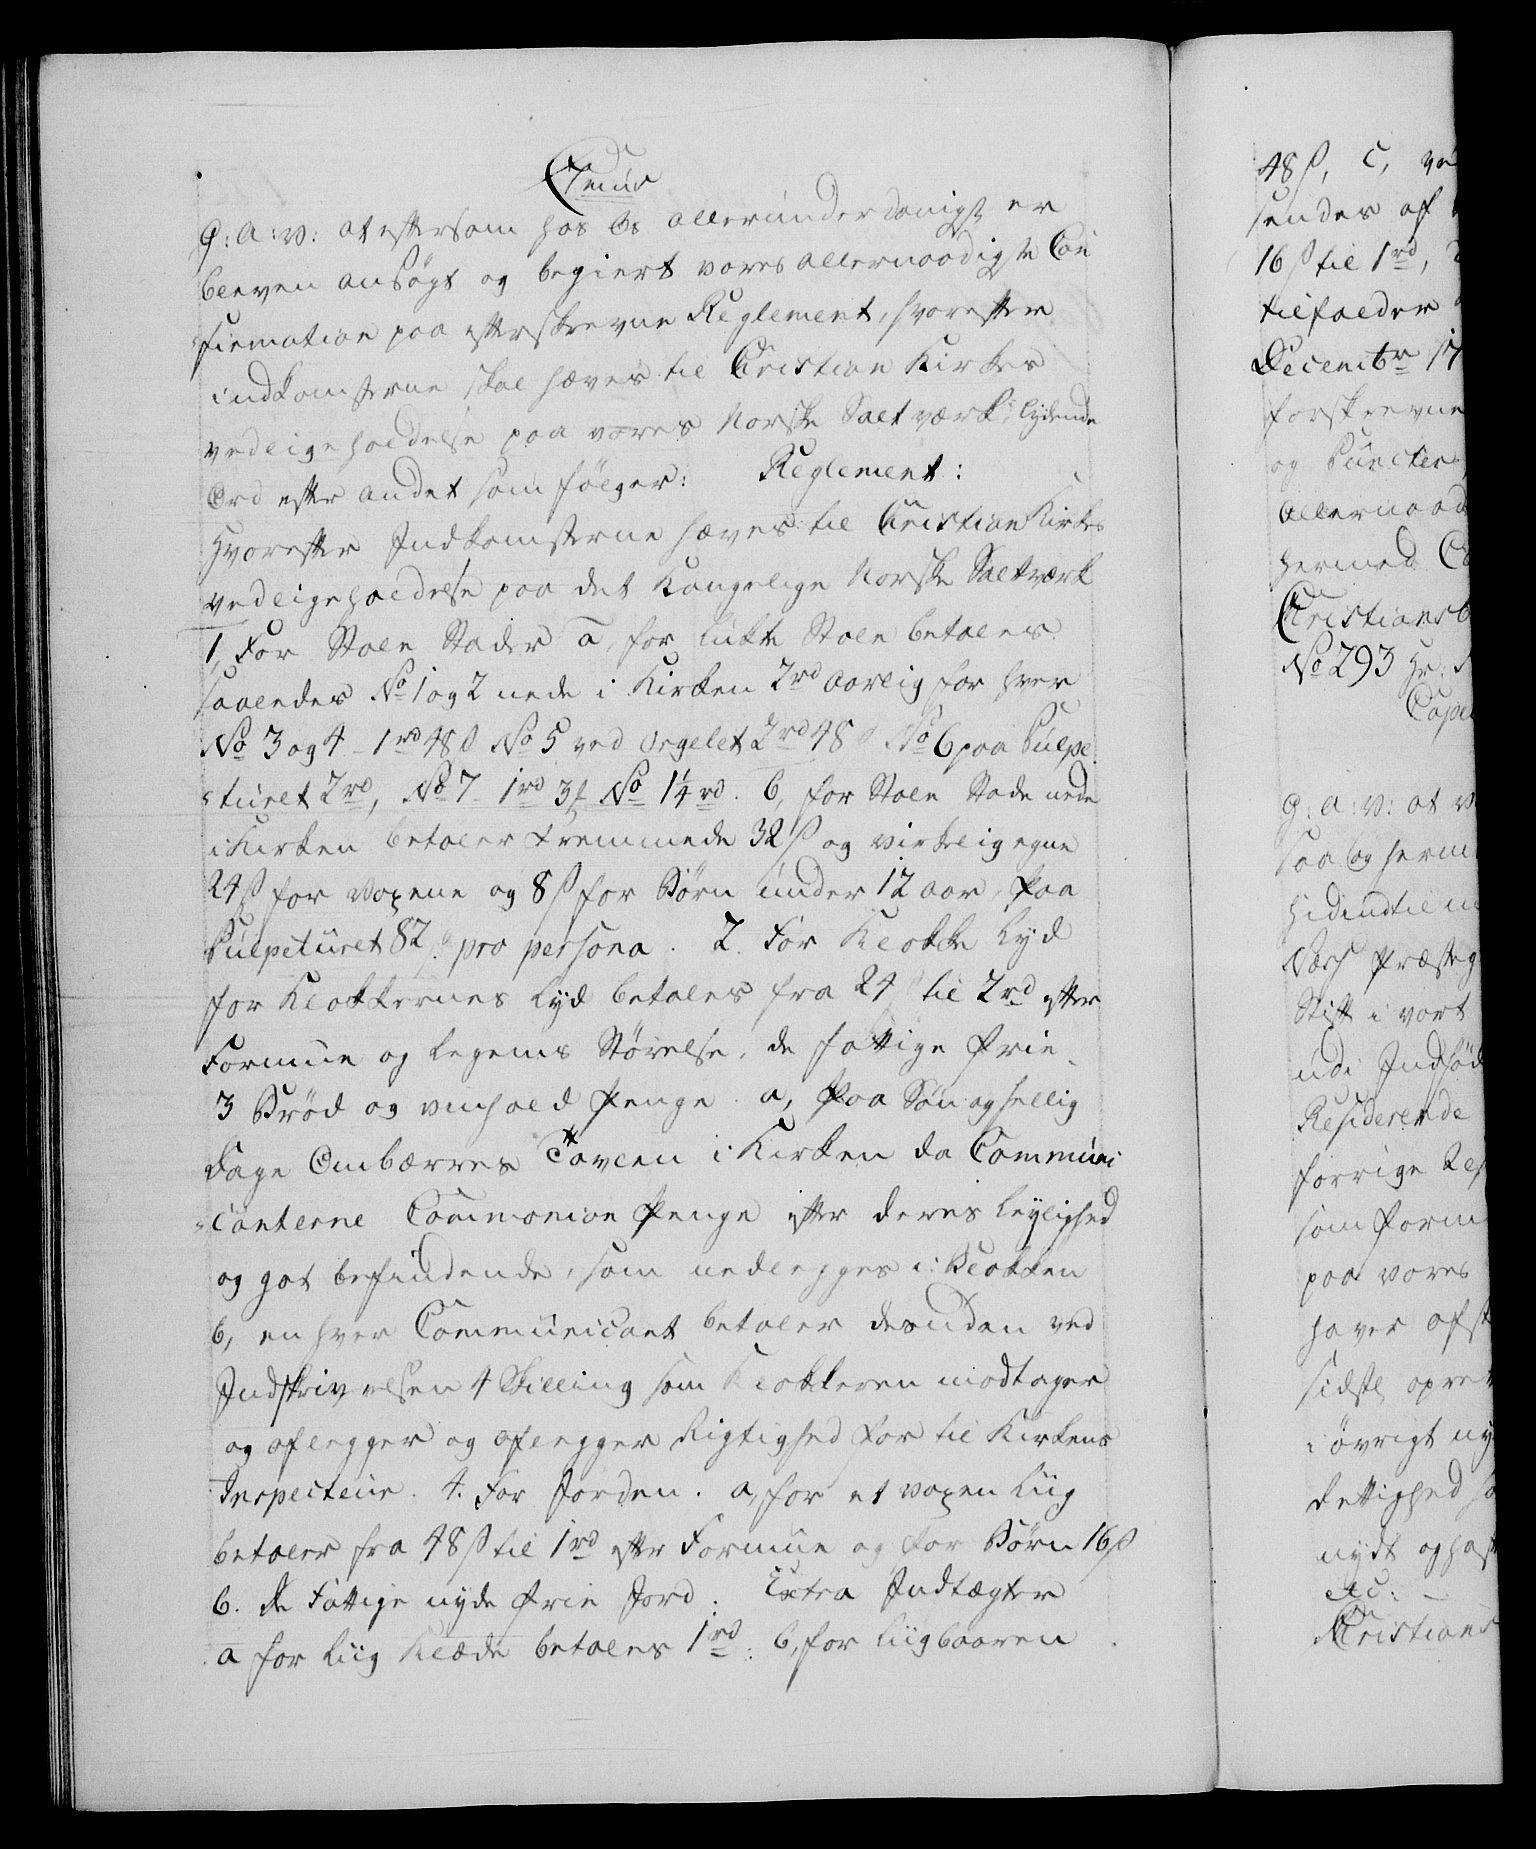 G: A: V: at eftersom hos Os allerunderdanigst er
bleven ansøgt og begiert vores allernaadigste Con
firmation paa efterskrevne Reglement, hvorefter
indkomsterne skal hæves til Cristian Kirkes
vedligeholdelse paa vores Norske Saltværk, lydende
Ord efter andet som følger: Reglement:
Hvorefter Indkomsterne hæves til Cristian Kirkes
vedligeholdelse paa det Kongelige Norske Saltværk
1, For Stole Stader a, for lukte Stole betales
saaledes No 1 og 2 nede i Kirken 2rd aarlig for hver
No 3 og 4 - 1rd 48ß No 5 ved Orgelet 2rd 48ß No 6 paa Pulpe
turet 2rd, No 7 1rd 3ß No 1¼rd. b, for Stole Stade nede
i Kirken betaler Fremmede 32ß og virkelig egne
24ß for Voxne og 8ß for Børn under 12 aar, paa
Pulpeturet 82ß pro persona. 2. For Klokke Lyd
for Klokkernes Lyd betales fra 24ß til 2rd efter
Formue og Legems Størelse, de fattige frie.
3 Brød og viinhold Penge. a, Paa Søn og hellig
Dage Ombærres Tavlen i Kirken da Communi
canterne Communion Penge efter deres Leylighed
og got befindende, som nedlegges i Blokken
b, en hver Communicant betaler desuden ved
Indskrivelsen 4 Skilling som Klokkeren modtager
og aflegger og aflegger Rigtighed for til Kirkens
Inspecteur. 4. For Jorden. a, for et voxen Liig
betaler fra 48ß til 1rd efter Formue og for Børn 16ß
b. de Fattige nyde frie Jord. Extra Indtægter
a for Liig Klæde betales 1rd: b, for Liigbaaren
48ß, C, ve
sendes af
16ß til 1rd,
tilfælder
Decembr 17
forskrevne
og Puncter
allernaad
hermed Co
Cristiansb
No 293 Hr:
Capel
G: A: V: at v
saa og herm
hidindtil
Næs Præsteg
Stift i vort
udi Indfød
Residerende
forrige Res
som form
paa vores
haver afst
sidste opre
i øvrigt ny
Rettighed so
nydt og haf
etc: -
Cristians